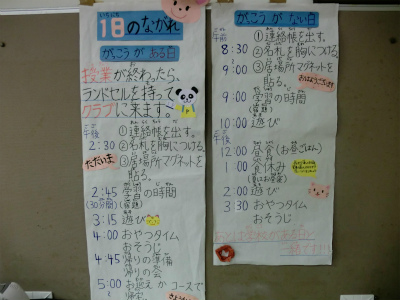 1日のながれ
いちにち
がっこうがある日
授業が終わったら、
ランドセルを持って
クラブに来ます。
午後
2:30
①連絡帳を出す。
②名札を胸につける。
③居場所マグネットを
貼る。
ただいま
2:45 学習の時間
(30分間)(宿題)
3:15 遊び
4:00 おやつタイム
おそうじ
4:45 帰りの準備
帰りの会
5:00 お迎えかコースで
がっこうがない日
午前
8:30
①連絡帳を出す。
②名札を胸につける。
9:00
③居場所マグネットを
貼る。
おはようございます
9:00 学習の時間
(宿題)
10:00 遊び
12:00 昼食(お昼ごはん)
1:00 昼休み
2:00 遊び
3:30 おやつタイム
おそうじ